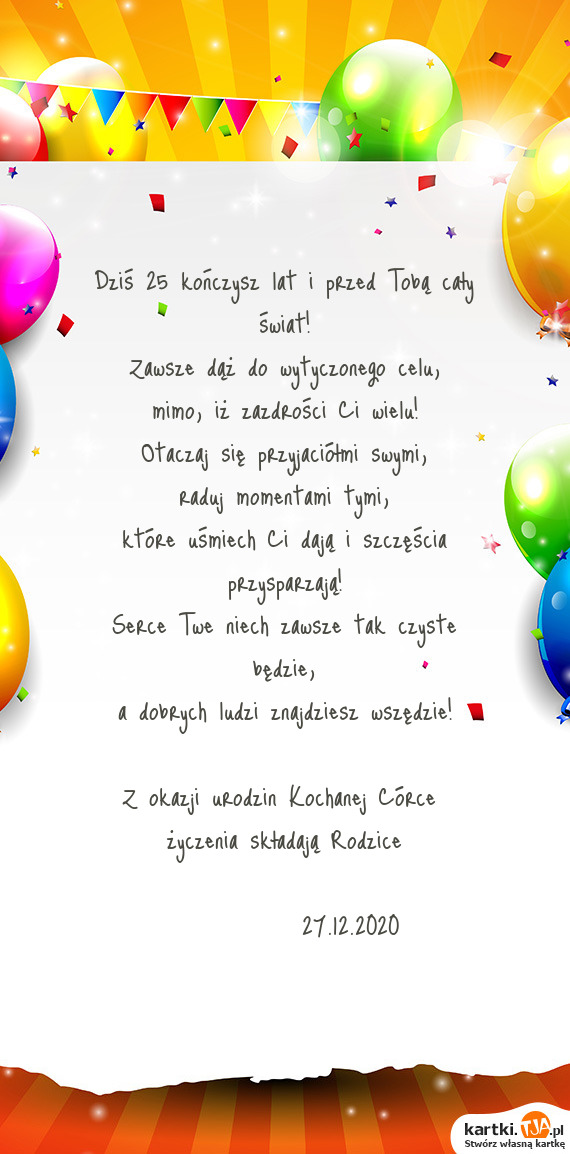 Dziś 25 kończysz lat i przed Tobą cały
świat!
Zawsze dąż do wytyczonego celu,
mimo, iż zazdrości Ci wielu!
Otaczaj się przyjaciółmi swymi,
raduj momentami tymi,
które uśmiech Ci dają i szczęścia
przysparzają!
Serce Twe niech zawsze tak czyste
będzie,
a dobrych ludzi znajdziesz wszędzie!
Z okazji urodzin Kochanej Córce
życzenia składają Rodzice
27.12.2020
kartki.TJA.pl
Stwórz własną kartkę